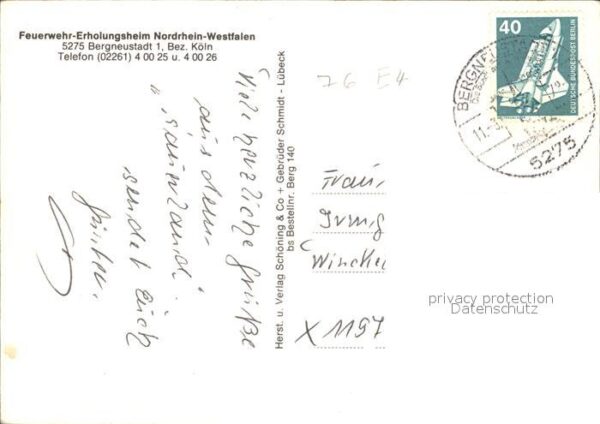 Feuerwehr-Erholungsheim Nordrhein-Westfalen
5275 Bergneustadt 1, Bez. Köln
Telefon (02261) 4 00 25 u. 4 00 26
Viele herzliche Grüße
aus dem
"Sauerland"
sendet Euch
Günter.
Herst. u. Verlag Schöning & Co + Gebrüder Schmidt - Lübeck
bs Bestellnr. Berg 140
76 E4
40
DEUTSCHE BUNDESPOST BERLIN
5275
Frau
Irmg
Winckel
X 1197
privacy protection
Datenschutz